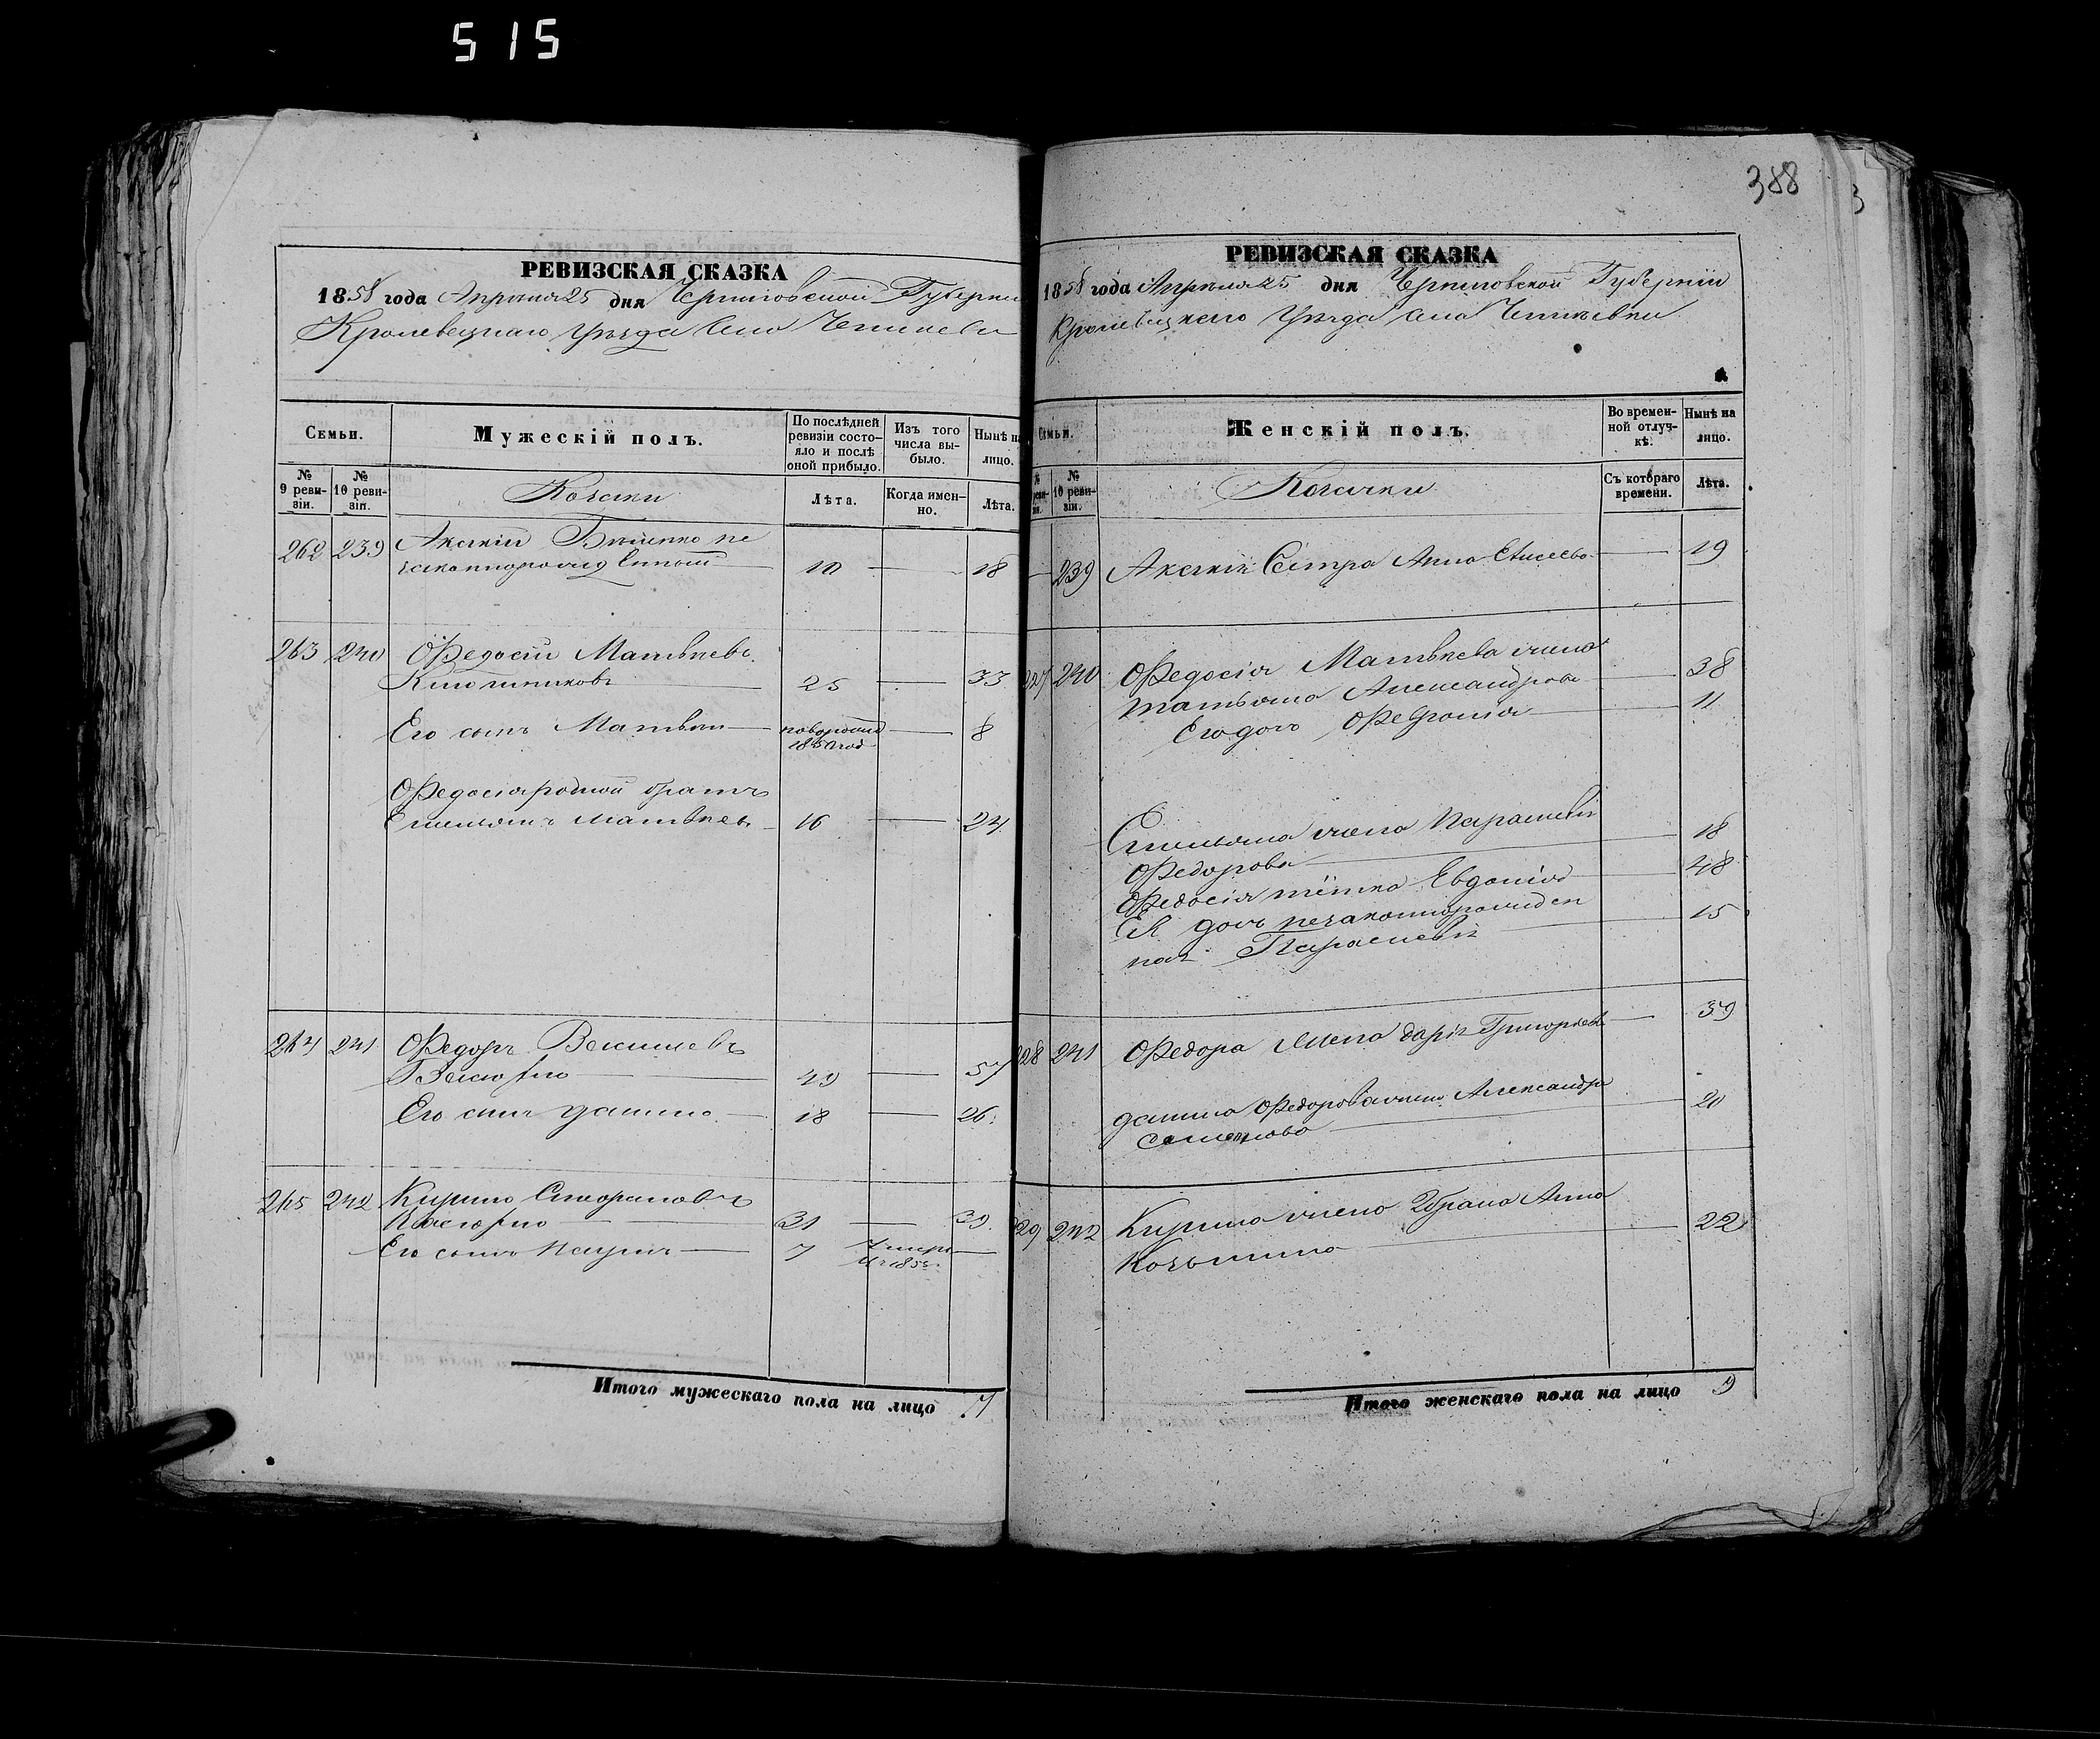 515
388
РЕВИЗСКАЯ СКАЗКА
1858 года Апреля 25 дня Черниговской Губерни
Кролевецкаго Уезда Села
Семьи.
Мужескій полъ.
По послѣдней ревизіи состо-
яло и послѣ оной прибыло.
Изъ того числа вы-
было.
Нынѣ на лицо.
№ 9 реви-
зіи.
№ 10 реви-
зіи.
Козаки
Лѣта.
Когда имен-
но.
Лѣта.
262 239
10 — 18
263 240 Федосій Матвѣевъ
25 — 33
Его сынъ Матвѣй — новорожд 1850 год — 8
Федосія родной братъ
Емельянъ Матвѣев 16 — 24
264 241 Федоръ
49 — 57
Его сынъ Данило 18 — 26
265 242 Кирило
31 — 39
Его сынъ Наумъ — 7 —
Итого мужескаго пола на лицо 7
РЕВИЗСКАЯ СКАЗКА
1858 года Апрѣля 25 дня Черниговской Губерніи
Кролевецкаго Уѣзда села
Семьи.
Женскій полъ.
Во времен-
ной отлуч-
кѣ.
Нынѣ на лицо.
№ 10 реви-
зіи.
Козачки
Съ котораго времени.
Лѣта.
— 239 Сестра Анна Елисеева — 19
227 240 Федосія Матвѣева жена
Татьяна Александрова — 38
Его дочь Феврония — 11
Емельяна жена Параскевія
Федорова — 18
Федосія тётка Евдокія — 48
Ея дочь незаконнорожден
ная Параскевія — 15
228 241 Федора жена Дарія Григорьева — 39
Данила Федорова жена Александра
Семенова — 20
229 242 Кирила жена 2 брака Анна
Козьмина — 22
Итого женскаго пола на лицо 9